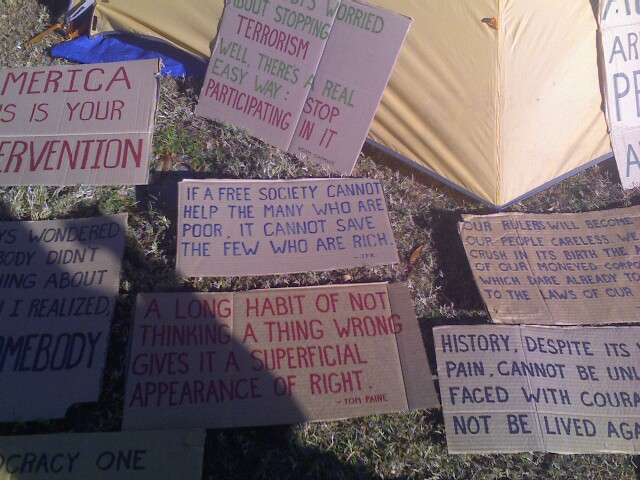 WORRIED
ABOUT STOPPING
TERRORISM
WELL, THERE'S A REAL
EASY WAY: STOP
PARTICIPATING IN IT
AR
A
MERICA
S IS YOUR
ERVENTION
IF A FREE SOCIETY CANNOT
HELP THE MANY WHO ARE
POOR, IT CANNOT SAVE
THE FEW WHO ARE RICH.
- JFK
WONDERED
BODY DIDN'T
HING ABOUT
I REALIZED,
OMEBODY
OUR RULERS WILL BECOME
OUR PEOPLE CARELESS WE
CRUSH IN ITS BIRTH THE
OF OUR MONEYED CORPO
WHICH DARE ALREADY
TO THE LAWS OF OUR
A LONG HABIT OF NOT
THINKING A THING WRONG
GIVES IT A SUPERFICIAL
APPEARANCE OF RIGHT.
- TOM PAINE
HISTORY, DESPITE ITS
PAIN, CANNOT BE UNL
FACED WITH COURA
NOT BE LIVED AGA
OCRACY ONE